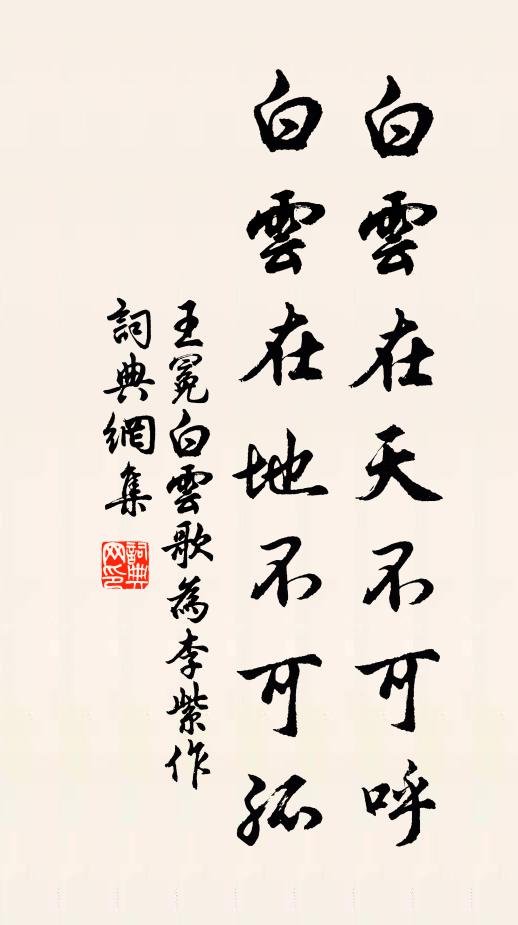 白雲在天不可呼
白雲在地不可孤
王冕白雲歌為李紫作
詞典網集
詞典网印